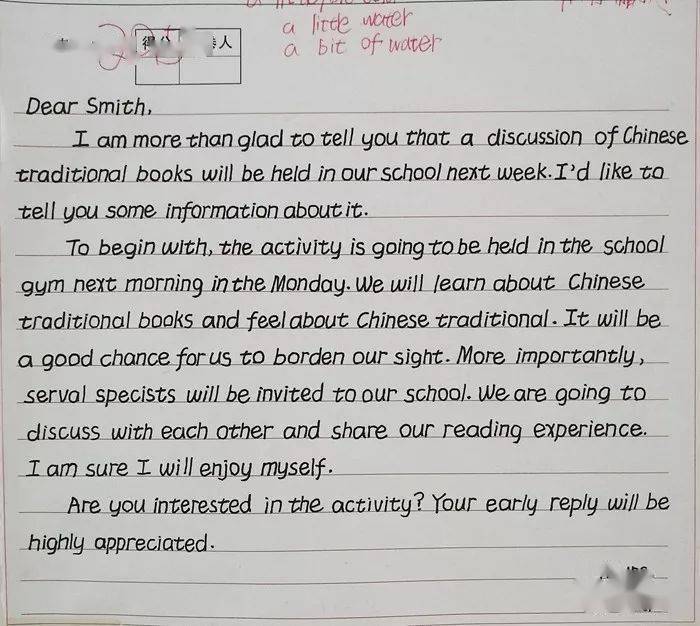 a little water
a bit of water
人
Dear Smith,
I am more than glad to tell you that a discussion of Chinese
traditional books will be held in our school next week. I'd like to
tell you some information about it.
To begin with, the activity is going to be held in the school
gym next morning in the Monday. We will learn about Chinese
traditional books and feel about Chinese traditional. It will be
a good chance for us to borden our sight. More importantly,
serval specists will be invited to our school. We are going to
discuss with each other and share our reading experience.
I am sure I will enjoy myself.
Are you interested in the activity? Your early reply will be
highly appreciated.